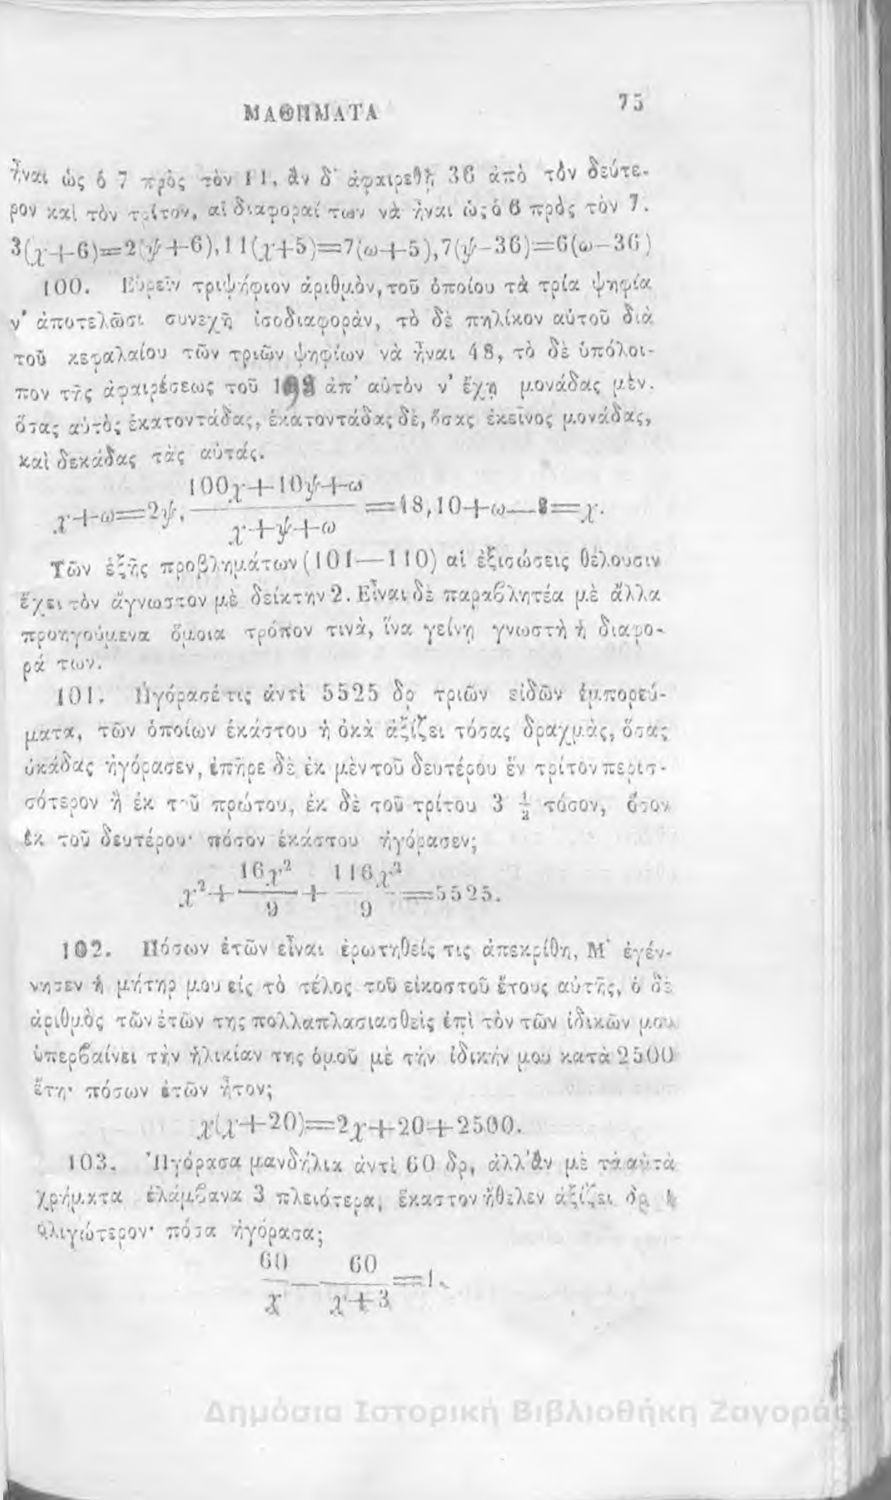 ΜΑΘΗΜΑΤΑ
75
ἦναι ὡς ὁ 7 πρὸς τὸν 11, ἂν δ' ἀφαιρεθῇ 36 ἀπὸ τὸν δεύτε-
ρον καὶ τὸν τρίτον, αἱ διαφοραί των νὰ ἦναι ὡς ὁ 6 πρὸς τὸν 7.
3(χ+6)=2(ψ+6),11(χ+5)=7(ω+5),7(ψ-36)=6(ω-36)
100. Εὑρεῖν τριψήφιον ἀριθμὸν, τοῦ ὁποίου τὰ τρία ψηφία
ν' ἀποτελῶσι συνεχῆ ἰσοδιαφορὰν, τὸ δὲ πηλίκον αὐτοῦ διὰ
τοῦ κεφαλαίου τῶν τριῶν ψηφίων νὰ ἦναι 48, τὸ δὲ ὑπόλοι-
πον τῆς ἀφαιρέσεως τοῦ ἀπ' αὐτὸν ν' ἔχῃ μονάδας μὲν.
ὅσας αὐτὸς ἑκατοντάδας, ἑκατοντάδας δὲ, ὅσας ἐκεῖνος μονάδας,
καὶ δεκάδας τὰς αὐτάς.
χ+ω=2ψ, (100χ+10ψ+ω)/(χ+ψ+ω)=48,10+ω—8=χ.
Τῶν ἑξῆς προβλημάτων (101—110) αἱ ἐξισώσεις θέλουσιν
ἔχει τὸν ἄγνωστον μὲ δείκτην 2. Εἶναι δὲ παραβλητέα μὲ ἄλλα
προηγούμενα ὅμοια τρόπον τινὰ, ἵνα γείνῃ γνωστὴ ἡ διαφο-
ρά των.
101. Ἠγόρασέ τις ἀντὶ 5525 δρ τριῶν εἰδῶν ἐμπορεύ-
ματα, τῶν ὁποίων ἑκάστου ἡ ὀκὰ ἀξίζει τόσας δραχμὰς, ὅσας
ὀκάδας ἠγόρασεν, ἐπῆρε δὲ ἐκ μὲν τοῦ δευτέρου ἓν τρίτον περισ-
σότερον ἢ ἐκ τοῦ πρώτου, ἐκ δὲ τοῦ τρίτου 3 ½ τόσον, ὅσον
ἐκ τοῦ δευτέρου· πόσον ἑκάστου ἠγόρασεν;
χ²+16χ²/9+116χ²/9=5525.
102. Πόσων ἐτῶν εἶναι ἐρωτηθείς τις ἀπεκρίθη, Μ' ἐγέν-
νησεν ἡ μήτηρ μου εἰς τὸ τέλος τοῦ εἰκοστοῦ ἔτους αὐτῆς, ὁ δὲ
ἀριθμὸς τῶν ἐτῶν της πολλαπλασιασθεὶς ἐπὶ τὸν τῶν ἰδικῶν μου
ὑπερβαίνει τὴν ἡλικίαν της ὁμοῦ μὲ τὴν ἰδικήν μου κατὰ 2500
ἔτη· πόσων ἐτῶν ἦτον;
χ(χ+20)=2χ+20+2500.
103. Ἠγόρασα μανδήλια ἀντὶ 60 δρ, ἀλλ' ἂν μὲ τὰ αὐτὰ
χρήματα ἐλάμβανα 3 πλειότερα, ἕκαστον ἤθελεν ἀξίζει δρ 1
ὀλιγώτερον· πόσα ἠγόρασα;
60/χ—60/(χ+3)=1.
Δημόσια Ιστορική Βιβλιοθήκη Ζαγοράς